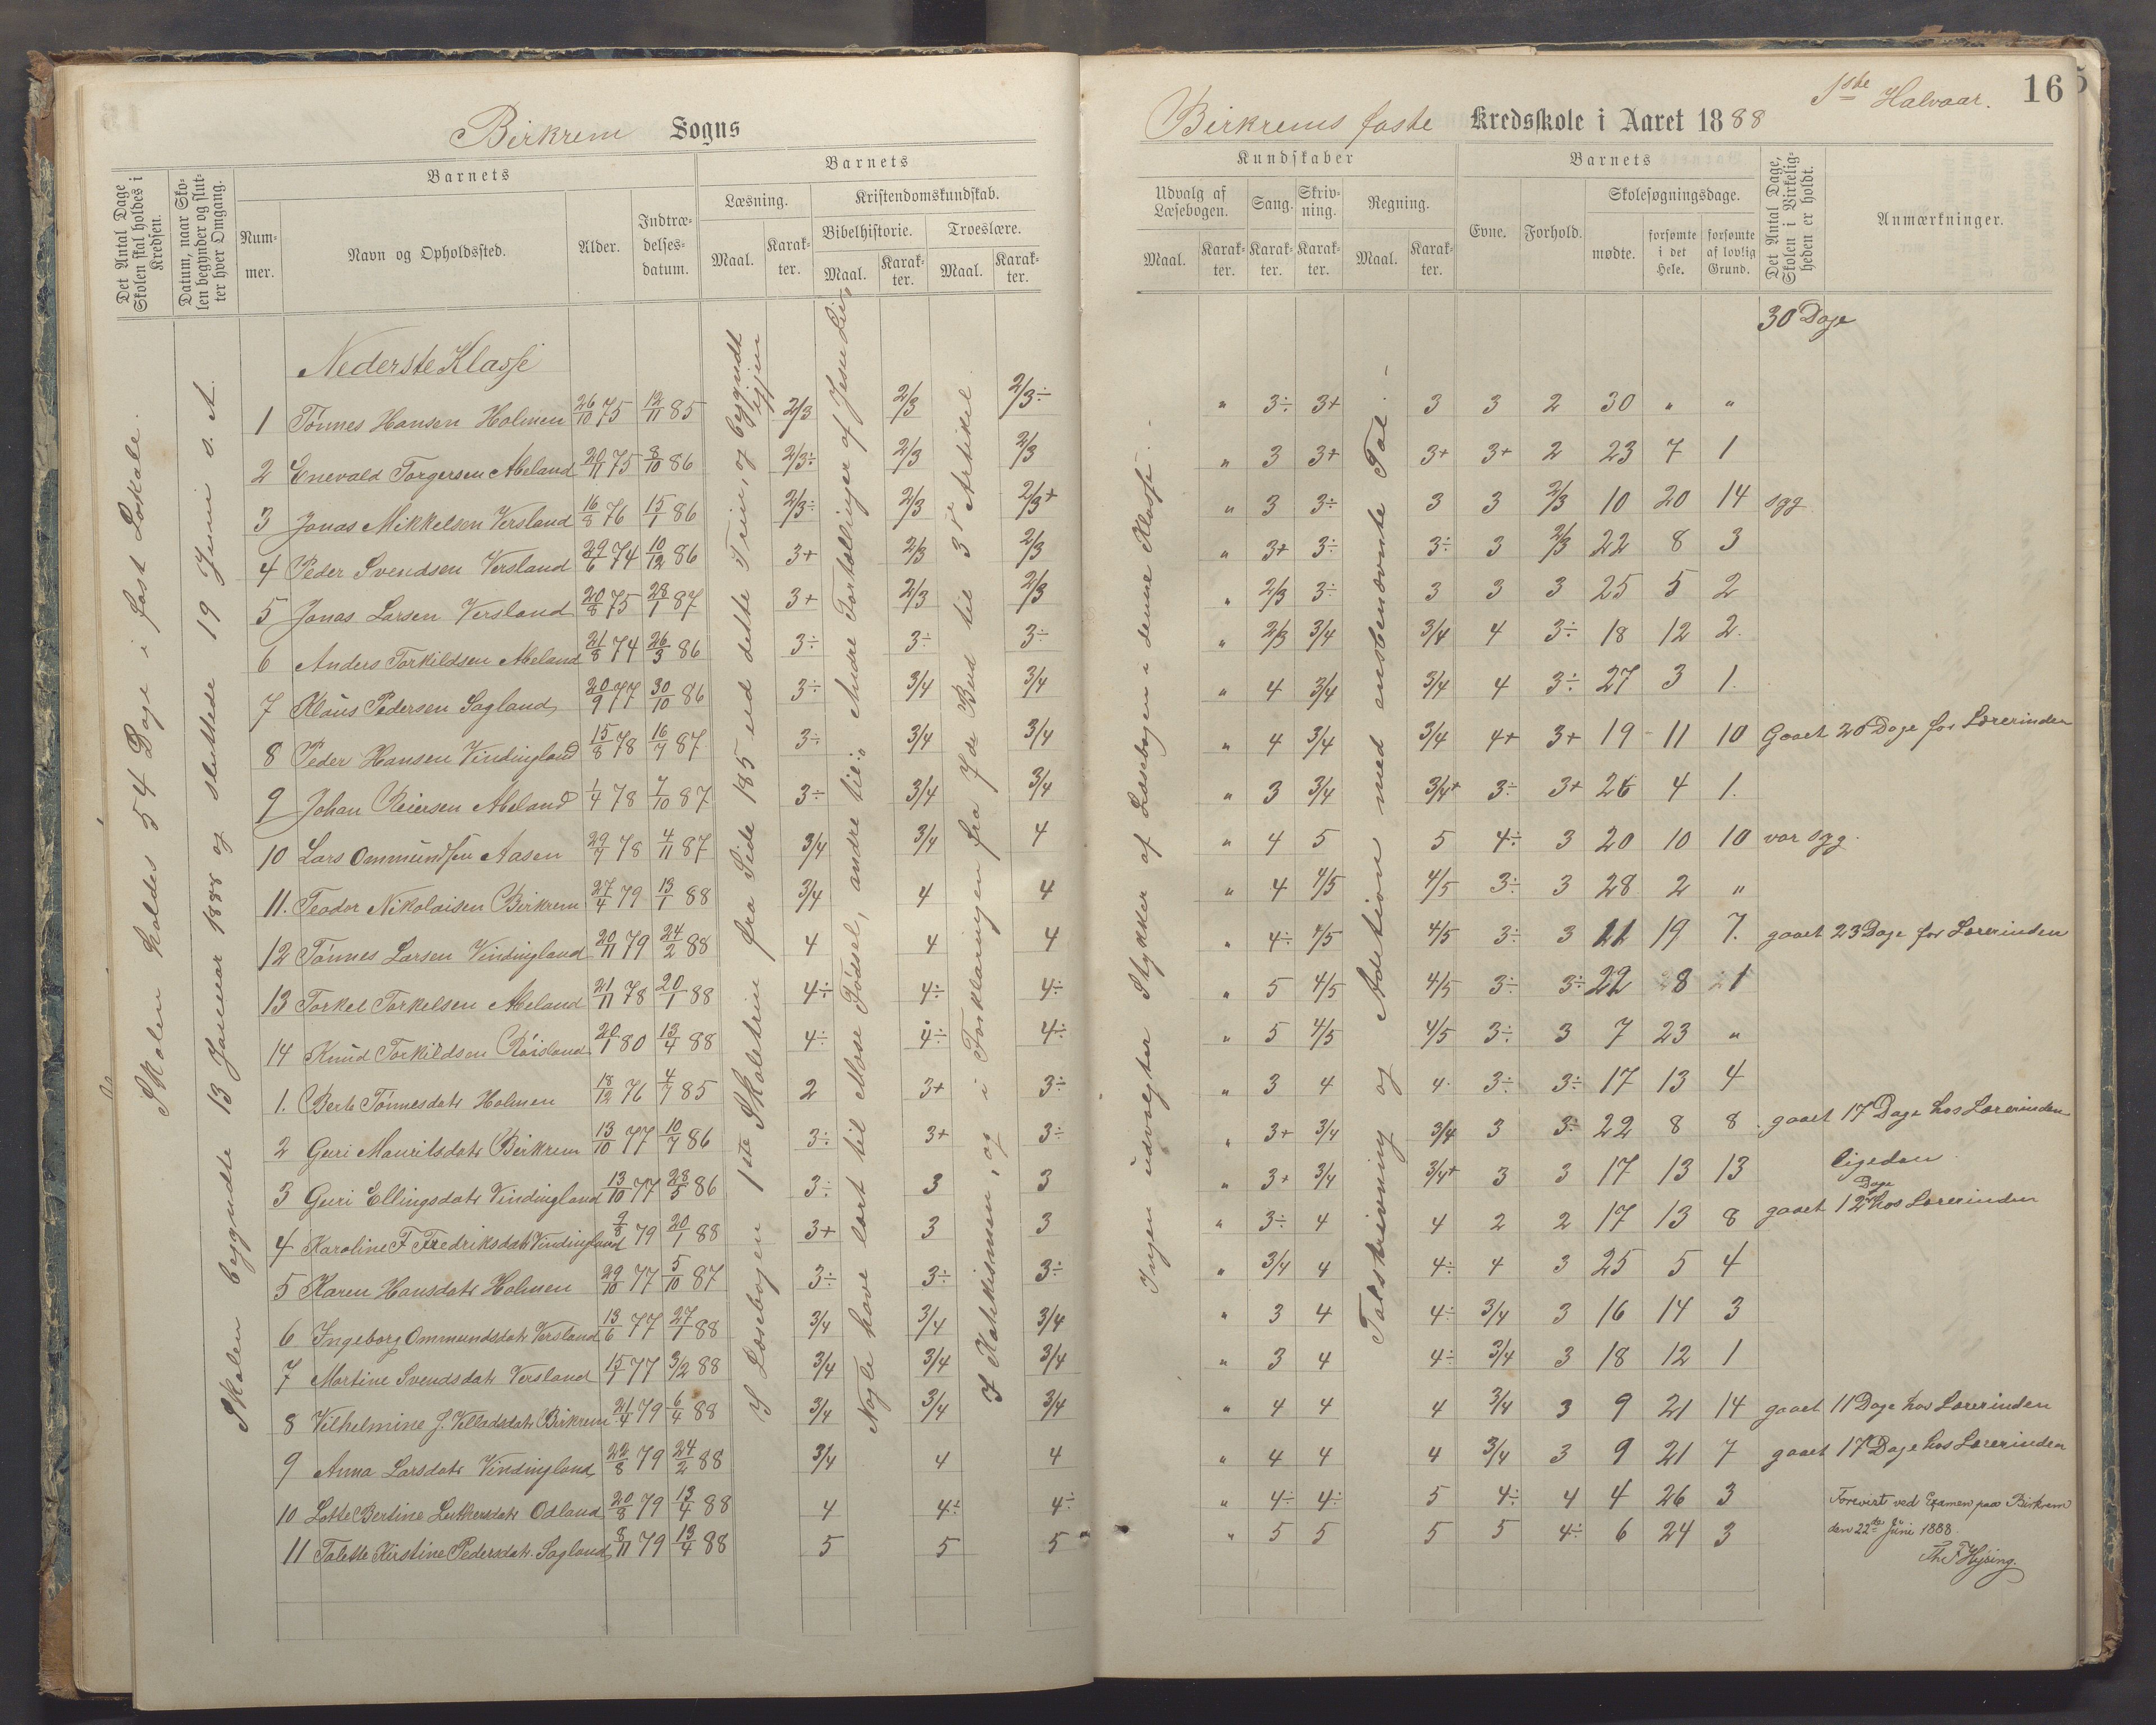 Birkrem Sogns
Det Antal Dage Skolen skal holdes i Kredsen.
Datum, naar Skolen begynder og slutter hver Omgang.
Barnets
Nummer.
Navn og Opholdssted.
Alder.
Indtrædelsesdatum.
Barnets
Læsning.
Maal.
Karakter.
Kristendomskundskab.
Bibelhistorie.
Maal.
Karakter.
Troeslære.
Maal.
Karakter.
Skolen holdes 54 Dage i fast Lokale.
Skolen begyndte 13 Januar 1888 og sluttede 19 Juni s. A.
Nederste Klasse
1 Tønnes Hansen Holmen 26/10 75 12/11 85 2/3 2/3 2/3÷
2 Enevald Torgersen Abeland 20/11 75 8/10 86 2/3÷ 2/3 2/3
3 Jonas Mikkelsen Versland 16/8 76 15/1 86 2/3÷ 2/3 2/3+
4 Peder Svendsen Versland 29/6 74 10/12 86 3+ 2/3 2/3
5 Jonas Larsen Versland 20/8 75 28/1 87 3+ 2/3 2/3
6 Anders Torkildsen Abeland 21/8 74 26/3 86 3÷ 3÷ 3÷
7 Klaus Pedersen Sagland 20/9 77 30/10 86 3÷ 3/4 3/4
8 Peder Hansen Vindingland 15/8 78 16/7 87 3÷ 3/4 3/4
9 Johan Reiersen Abeland 1/4 78 7/10 87 3÷ 3/4 3/4
10 Lars Ommundsen Aasen 29/7 78 4/11 87 3/4 3/4 4
11. Teodor Nikolaisen Birkrem 27/4 79 13/1 88 3/4 4 4
12 Tønnes Larsen Vindingland 20/11 79 24/2 88 4 4 4
13 Torkel Torkelsen Abeland 21/11 78 20/1 88 4÷ 4÷ 4÷
14 Knud Torkildsen Røisland 20/1 80 13/4 88 4÷ 4÷ 4÷
1. Berte Tønnesdatr Holmen 18/12 76 4/7 85 2 3+ 3÷
2 Guri Mauritsdatr Birkrem 13/10 77 10/7 86 3÷ 3+ 3÷
3 Guri Ellingsdatr Vindingland 13/10 77 28/5 86 3÷ 3 3
4 Karoline F Fredriksdatr Vindingland 9/8 79 20/1 88 3+ 3 3
5 Karen Hansdatr Holmen 29/10 77 5/10 87 3÷ 3÷ 3÷
6 Ingeborg Ommundsdatr Versland 13/6 77 27/1 88 3/4 3/4 3/4
7 Martine Svendsdatr Versland 15/7 77 3/2 88 3/4 3/4 3/4
8 Vilhelmine J. Velladsdatr Birkrem 21/4 79 6/4 88 3/4 3/4 3/4
9 Anna Larsdatr Vindingland 22/8 79 24/2 88 3/4 4 4
10 Lotte Bertine Luthersdatr Odland 20/8 79 13/4 88 4 4÷ 4÷
11 Talette Kirstine Pedersdatr Sagland 8/11 79 13/4 88 5 5 5
I Læsebogen 1ste Skoletrin fra Side 185 ud dette Trin, og begyndt igjen
Nogle have lært til Mose Fødsel, andre til: Andre Fortællinger af Jesu Liv
I Katekismen, og i Forklaringen fra 7de Bud til 3die Artikel.
1ste Halvaar.
16
Birkrems faste Kredsskole i Aaret 1888
Kundskaber
Udvalg af Læsebogen.
Maal.
Karakter.
Sang.
Karakter.
Skrivning.
Karakter.
Regning.
Maal.
Karakter.
Barnets
Evne.
Forhold.
Skolesøgningsdage.
mødte.
forsømte i det Hele.
forsømte af lovlig Grund.
Det Antal Dage, Skolen i Virkeligheden er holdt.
Anmærkninger.
30 Dage
Ingen udvalgter Stykker af Læsebogen i denne Klasse.
Talskrivning og Adetion med ensbenævnte Tal.
" 3÷ 3+ 3 3 2 30 " "
" 3 3+ 3+ 3+ 2 23 7 1
" 3 3÷ 3 3 2/3 10 20 14 syg
" 3+ 3÷ 3÷ 3 2/3 22 8 3
" 2/3 3÷ 3 3 3 25 5 2
" 2/3 3/4 3/4 4 3÷ 18 12 2.
" 4 3/4 3/4 4 3÷ 27 3 1.
" 4 3/4 3/4 4+ 3+ 19 11 10 Gaaet 20 Dage for Lærerinden
" 3 3/4 3/4+ 3÷ 3+ 26 4 1.
" 4 5 5 4÷ 3 20 10 10 var syg.
" 4 4/5 4/5 3÷ 3 28 2 "
" 4÷ 4/5 4/5 3÷ 3 11 19 7. gaaet 23 Dage for Lærerinden
" 5 4/5 4/5 3÷ 3÷ 22 8 1
" 5 4/5 4/5 3÷ 3 7 23 "
" 3 4 4 3÷ 3÷ 17 13 4
" 3+ 3/4 3/4 3 3÷ 22 8 8 gaaet 17 Dage hos Lærerinden
" 3+ 3/4 3/4+ 3 3 17 13 13 ligedan
" 3÷ 4 4 2 2 17 13 8 gaaet 12 Dage hos Lærerinden
" 3/4 4 4÷ 4 3 25 5 4
" 3 4 4÷ 3/4 3 16 14 3
" 3 4 4÷ 3/4 3 18 12 1
" 4 4 4 3/4 3 9 21 14 gaaet 11 Dage hos Lærerinden
" 4 4 4 3/4 3 9 21 7 gaaet 17 Dage hos Lærerinden
" 4÷ 4÷ 5 4÷ 4 4 26 3
" 5 5 5 5 4÷ 6 24 3
Forevist ved Examen paa Birkrem
den 22de Juni 1888.
Th. F Hysing.